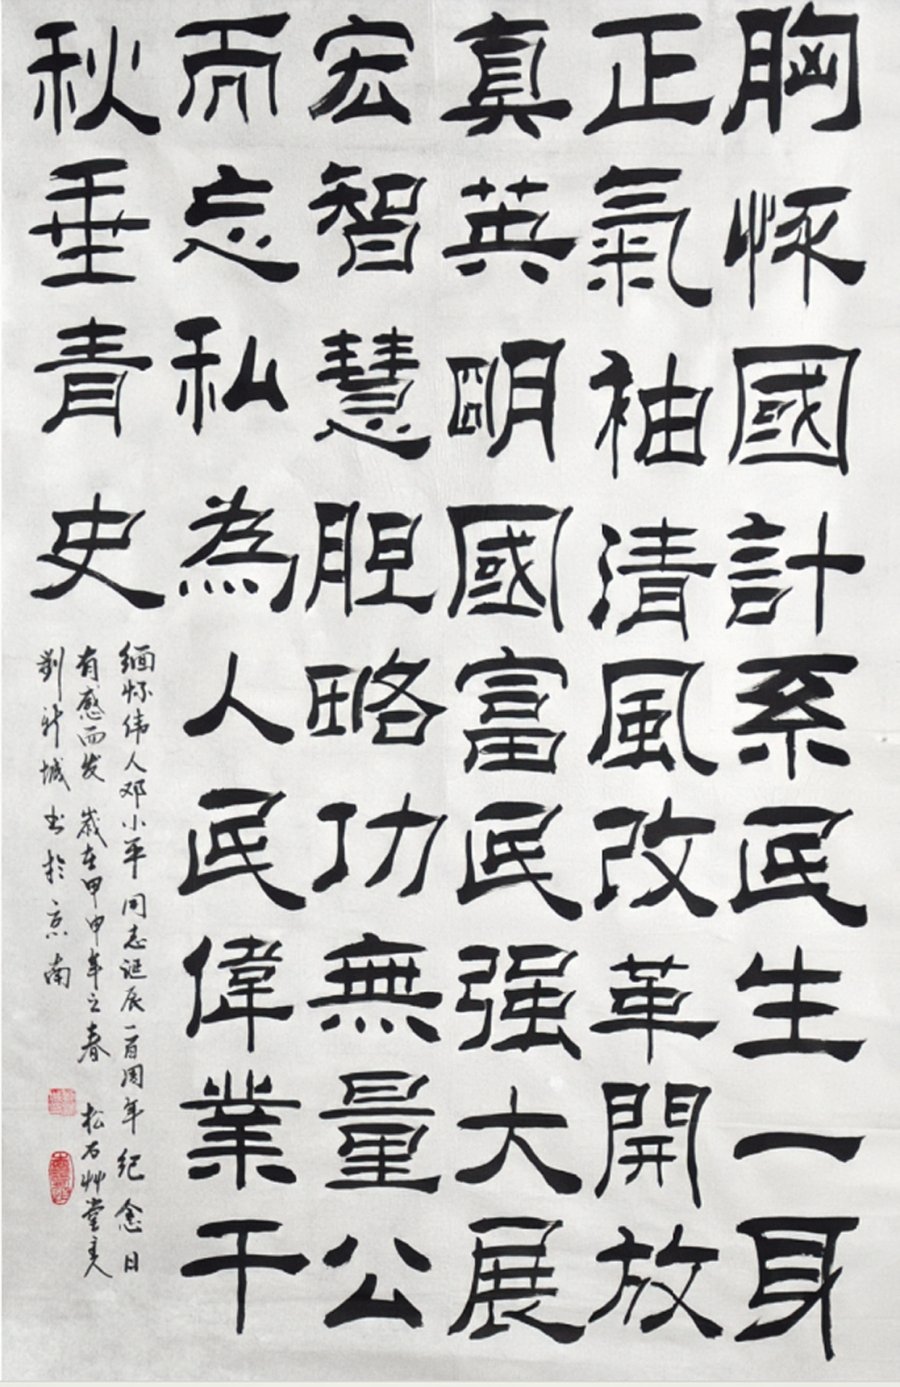 胸怀國計系民生一身
正氣袖清風改革開放
真英明國富民强大展
宏智慧胆略功無量公
而忘私為人民偉業千
秋垂青史
缅怀伟人邓小平同志诞辰一百周年纪念日
有感而发 岁在甲申年之春 松石艸堂主人
刘新城书於京南